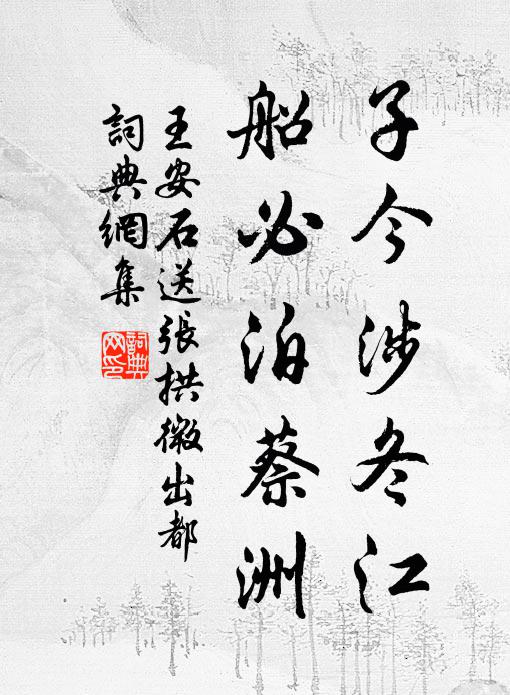 子今涉冬江
船必泊蔡洲
王安石送張拱微出都
詞典網集
詞典網印